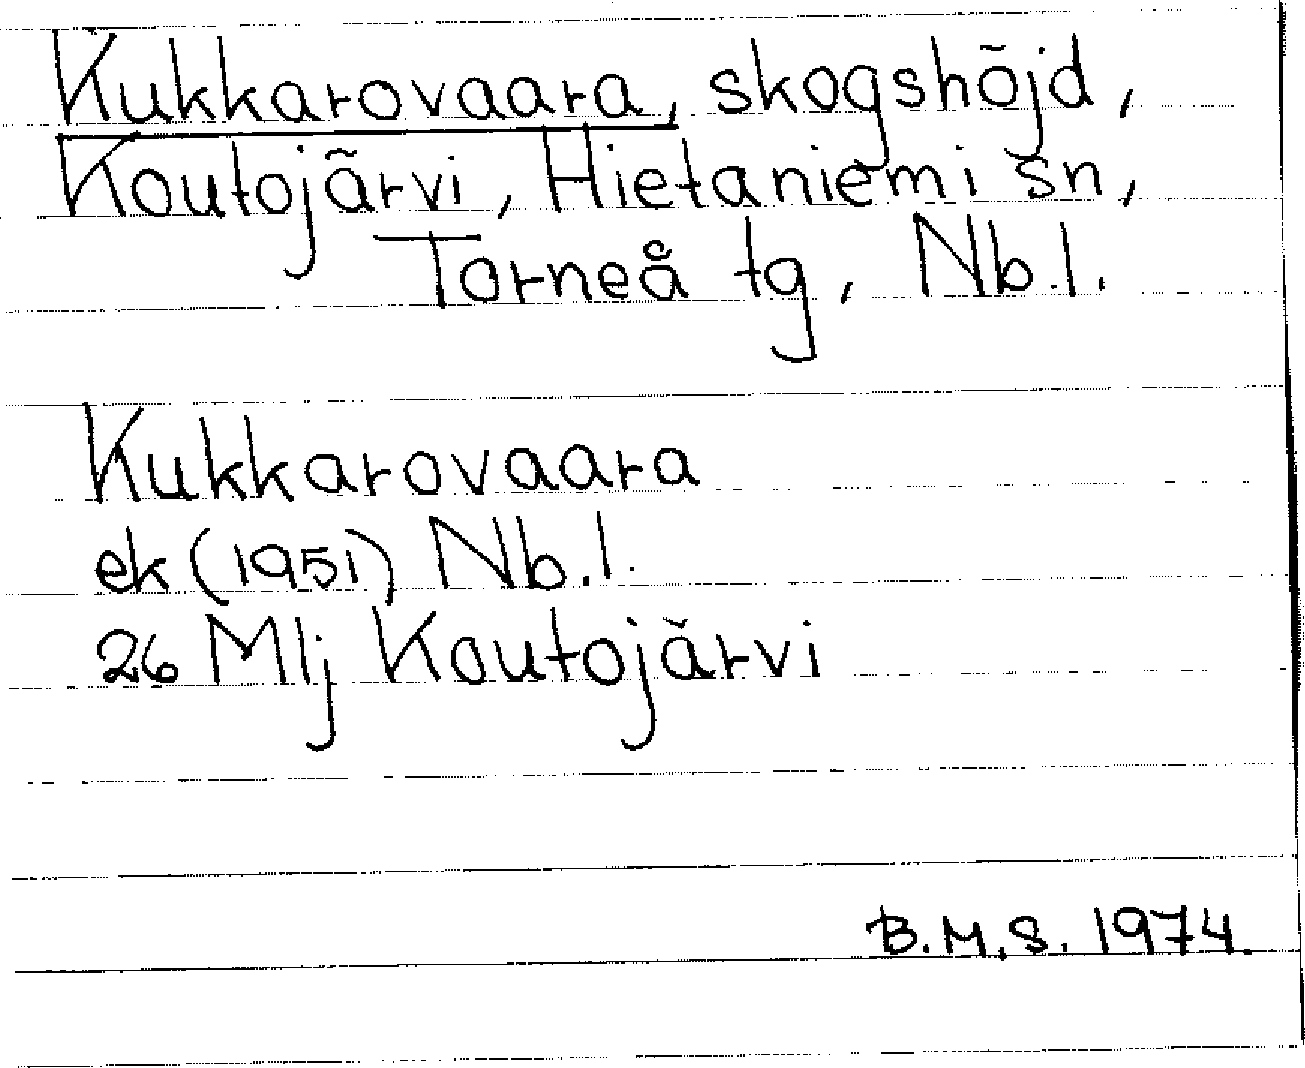 Kukkarovaara, skogshöjd,
Koutojärvi, Hietaniemi sn,
Torneå tg, Nb.l.
Kukkarovaara
ek (1951) Nb.l.
26 Mlj Koutojärvi
B.M.S. 1974.